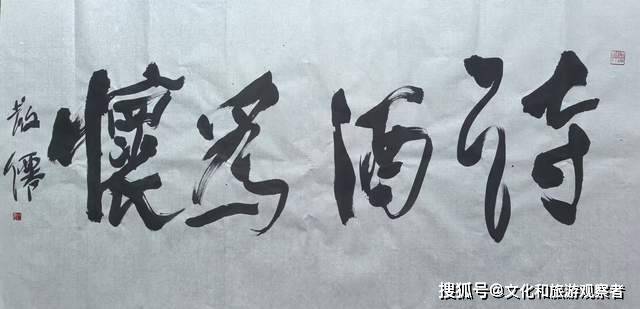 詩酒為懷
儒
搜狐号@文化和旅游观察者